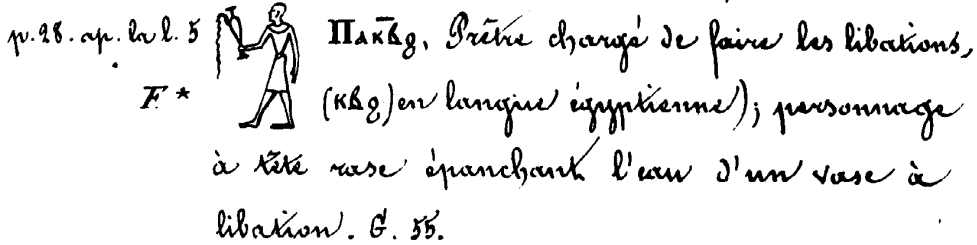 p. 28. ap. la l. 5 Ⲡⲁⲕⲃ̅ϩ, Prêtre chargé de faire les libations,
F * (ⲕⲃϩ) en langue égyptienne); personnage
à tête rase épanchant l'eau d'un vase à
libation. G. 55.